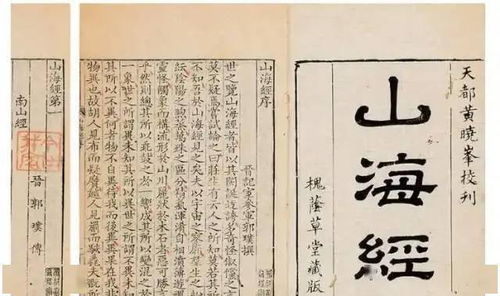 天都黃曉峯挍刊
山海經
槐蔭草堂藏版
山海經序
晉記室參軍郭璞撰
世之覽山海經者皆以其閎誕迂誇多奇怪俶儻之
莫不疑焉嘗試論之曰莊生有云人之所知莫若其
不知吾於山海經見之矣夫以宇宙之寥廓羣生之紛
紜陰陽之煦蒸萬殊之區分精氣渾淆自相濆薄遊
靈怪觸象而構流形於山川麗狀於木石者惡可勝言
乎然則總其所以乖鼓之於一響成其所以變混之於
一象世之所謂異未知其所以異世之所謂不異未知
其所以不異何者物不自異待我而後異異果在我非
物異也故胡人見布而疑黂越人見罽而駭毳夫
山海經第
南山經
晉 郭璞 傳